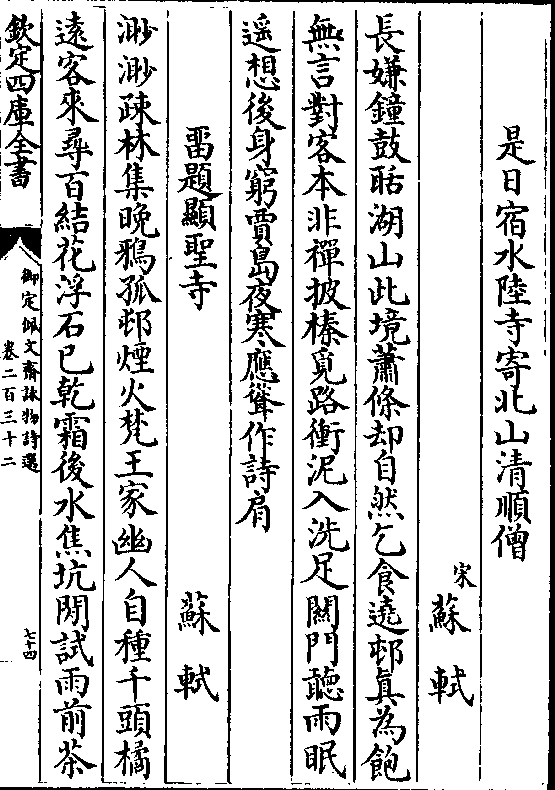 是日宿水陸寺寄北山清順僧
宋蘇軾
長嫌鐘鼓聒湖山此境蕭條却自然乞食遶邨真為飽
無言對客本非禪披榛覓路衝泥入洗足關門聽雨眠
遥想後身窮賈島夜寒應聳作詩肩
畱題顯聖寺
蘇軾
渺渺疎林集晚鴉孤邨煙火梵王家幽人自種千頭橘
遠客來尋百結花浮石已乾霜後水焦坑閒試雨前茶
欽定四庫全書
御定佩文齋詠物詩選
卷二百三十二
七十四